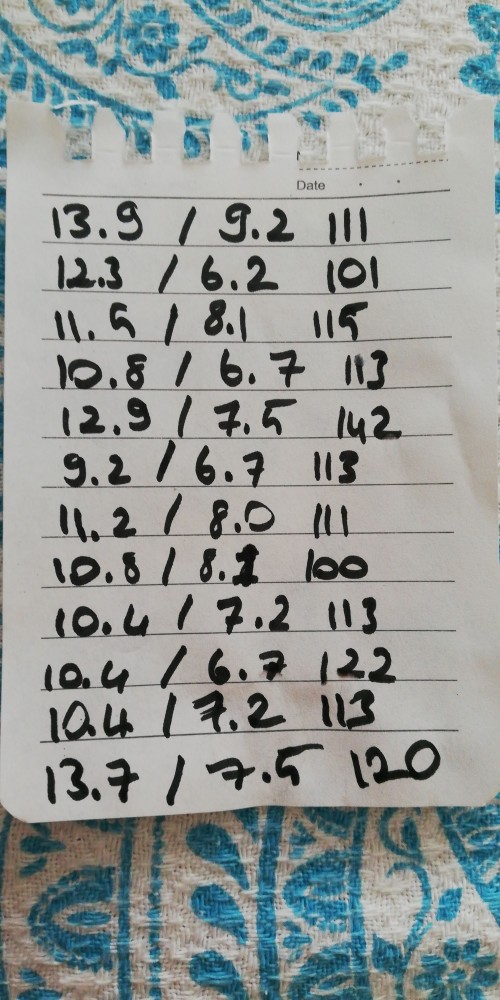 Date
13.9 / 9.2 111
12.3 / 6.2 101
11.5 / 8.1 115
10.8 / 6.7 113
12.9 / 7.5 142
9.2 / 6.7 113
11.2 / 8.0 111
10.8 / 8.1 100
10.4 / 7.2 113
10.4 / 6.7 122
10.4 / 7.2 113
13.7 / 7.5 120